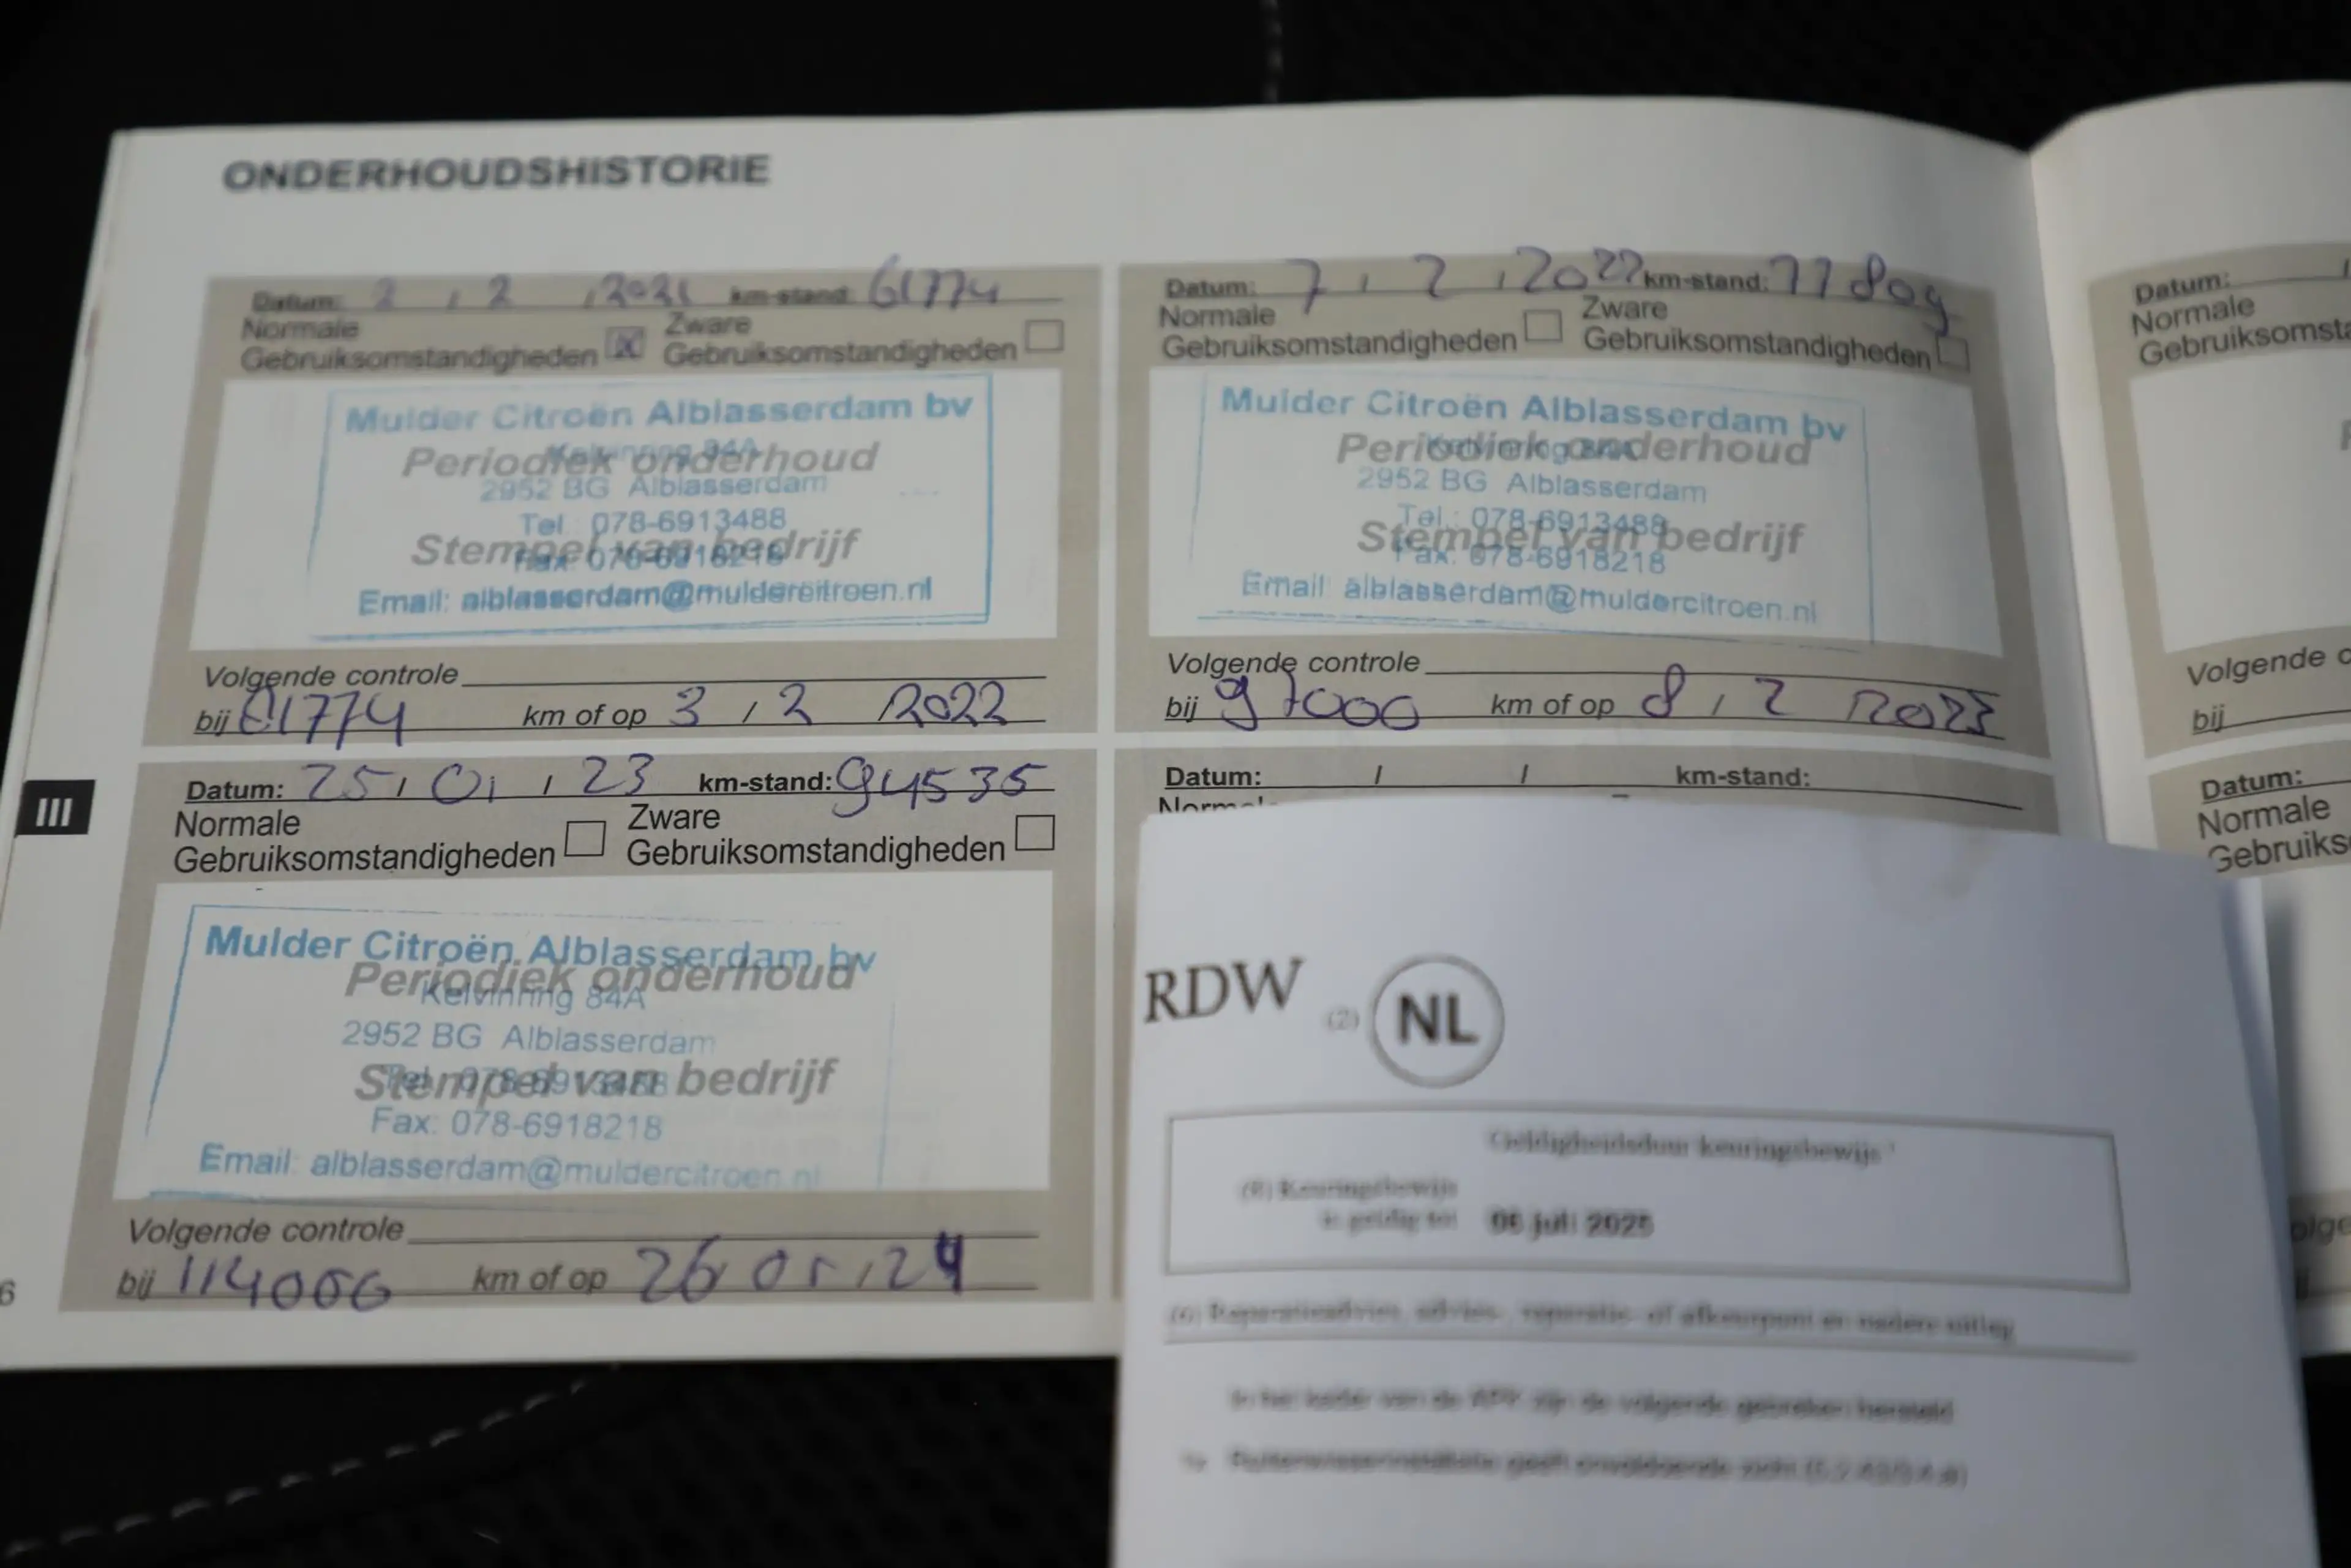 ONDERHOUDSHISTORIE
Datum: 2 / 2 / 2021 km-stand: 61774
Normale Gebruiksomstandigheden X Zware Gebruiksomstandigheden
Mulder Citroën Alblasserdam bv
Kelvinring 84A
Periodiek onderhoud
2952 BG Alblasserdam
Tel.: 078-6913488
Stempel van bedrijf
Fax: 078-6918218
Email: alblasserdam@muldercitroen.nl
Volgende controle
bij 81774 km of op 3 / 2 / 2022
Datum: 7 / 2 / 2022 km-stand: 77809
Normale Gebruiksomstandigheden Zware Gebruiksomstandigheden
Mulder Citroën Alblasserdam bv
Kelvinring 84A
Periodiek onderhoud
2952 BG Alblasserdam
Tel.: 078-6913488
Stempel van bedrijf
Fax: 078-6918218
Email: alblasserdam@muldercitroen.nl
Volgende controle
bij 97000 km of op 8 / 2 / 2023
III
Datum: 25 / 01 / 23 km-stand: 94535
Normale Gebruiksomstandigheden Zware Gebruiksomstandigheden
Mulder Citroën Alblasserdam bv
Periodiek onderhoud
Kelvinring 84A
2952 BG Alblasserdam
Tel.: 078-6913488
Stempel van bedrijf
Fax: 078-6918218
Email: alblasserdam@muldercitroen.nl
Volgende controle
bij 114000 km of op 26 01 / 24
6
Datum: / / km-stand:
RDW (2) NL
Geldigheidsduur keuringsbewijs
(8) Keuringsbewijs
is geldig tot 06 juli 2025
(6) Reparatieadvies, advies-, reparatie- of afkeurpunt en nadere uitleg
In het kader van de APK zijn de volgende gebreken hersteld
Ruitenwisserinstallatie geeft onvoldoende zicht
Datum: /
Normale
Volgende
bij
Datum:
Normale